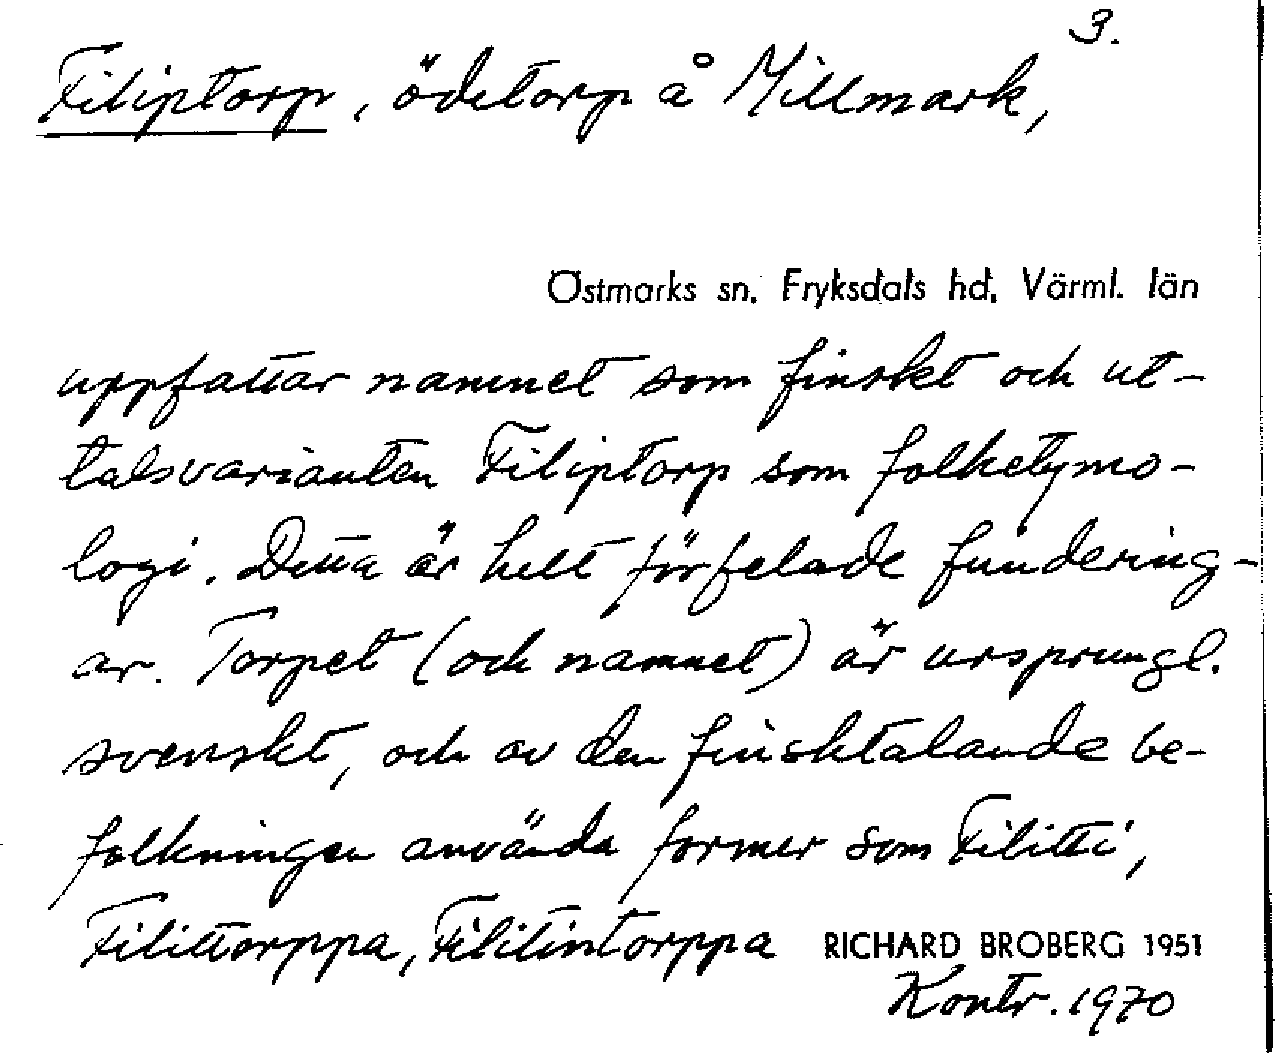 3.
Filiptorp, ödetorp å Millmark,
Östmarks sn. Fryksdals hd. Värml. län
uppfattar namnet som finskt och ut-
talsvarianten Filiptorp som folketymo-
logi. Detta är helt förfelade fundering-
ar. Torpet (och namnet) är ursprungl.
svenskt, och av den finsktalande be-
folkningen använda former som Filitti,
Filittorppa, Filitintorppa RICHARD BROBERG 1951
Kontr. 1970